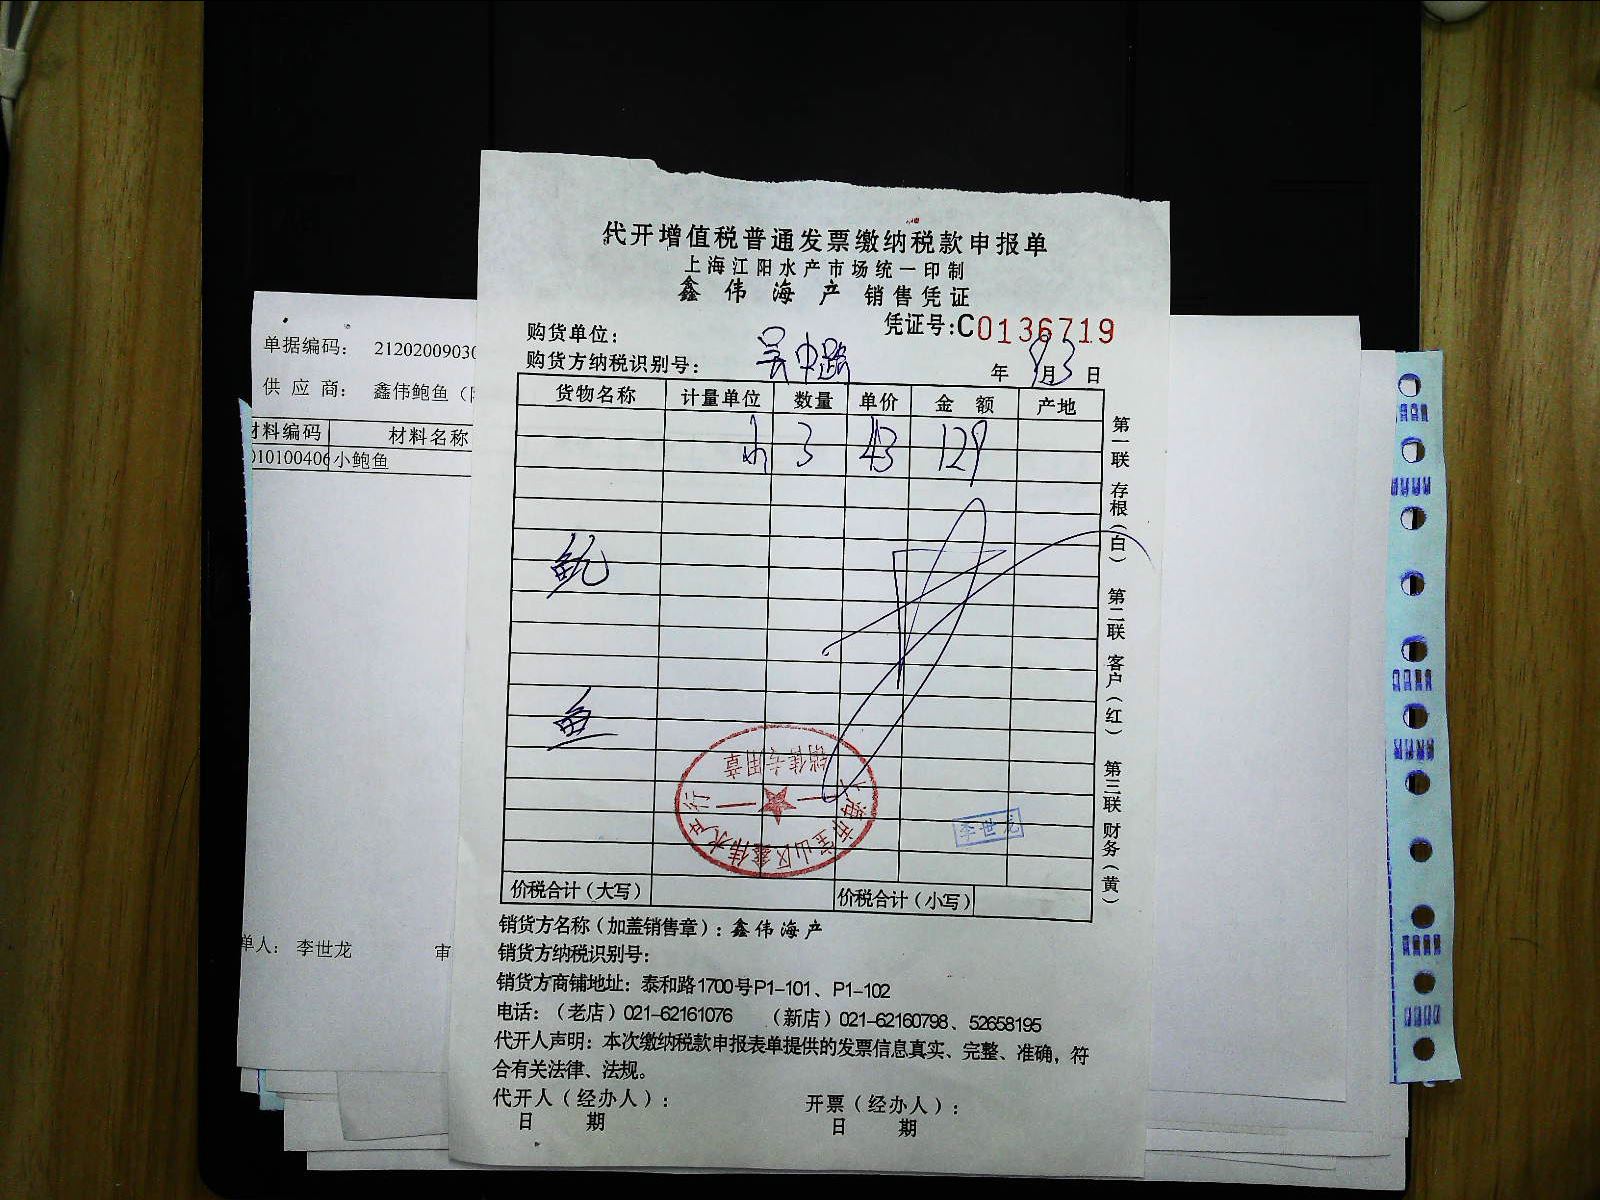 代开增值税普通发票缴纳税款申报单
上海江阳水产市场统一印制
鑫伟海产 销售凭证
凭证号:C0136719
购货单位：
购货方纳税识别号：
吴中路
年 9月3日
货物名称 计量单位 数量 单价 金额 产地
小 3 43 129
鲍
鱼
第一联 存根（白） 第二联 客户（红） 第三联 财务（黄）
上海市宝山区鑫伟水产行
销售专用章
李世龙
价税合计（大写） 价税合计（小写）
销货方名称（加盖销售章）：鑫伟海产
销货方纳税识别号：
销货方商铺地址：泰和路1700号P1-101、P1-102
电话：（老店）021-62161076 （新店）021-62160798、52658195
代开人声明：本次缴纳税款申报表单提供的发票信息真实、完整、准确，符
合有关法律、法规。
代开人（经办人）： 开票（经办人）：
日 期 日 期
单据编码： 21202009030
供 应 商： 鑫伟鲍鱼（
材料编码 材料名称
010100406 小鲍鱼
单人： 李世龙 审